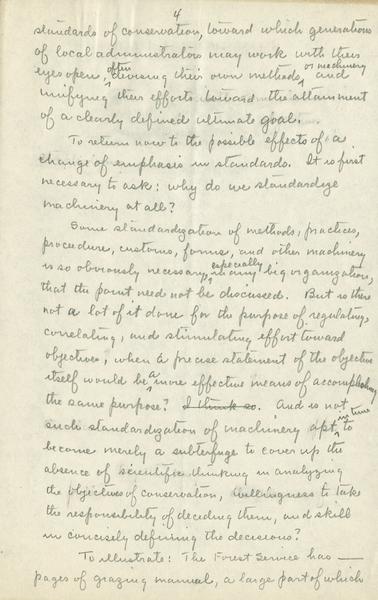 4
standards of conservation, toward which generations
of local administrators may work with their
eyes open, often devising their own methods or machinery, and
unifying their efforts toward the attainment
of a clearly defined ultimate goal.
To return now to the possible effects of a
change of emphasis in standards. It is first
necessary to ask: why do we standardize
machinery at all?
Some standardization of methods, practices,
procedure, customs, forms, and other machinery
is so obviously necessary, especially in any big organization,
that the point need not be discussed. But is there
not a lot of it done for the purpose of regulating,
correlating, and stimulating effort toward
objectives, when a precise statement of the objective
itself would be a more effective means of accomplishing
the same purpose? I think so. And is not
such standardization of machinery apt in time to
become merely a subterfuge to cover up the
absence of scientific thinking in analyzing
the objectives of conservation, willingness to take
the responsibility of deciding them, and skill
in concisely defining the decisions?
To illustrate: The Forest Service has —
pages of grazing manual, a large part of which